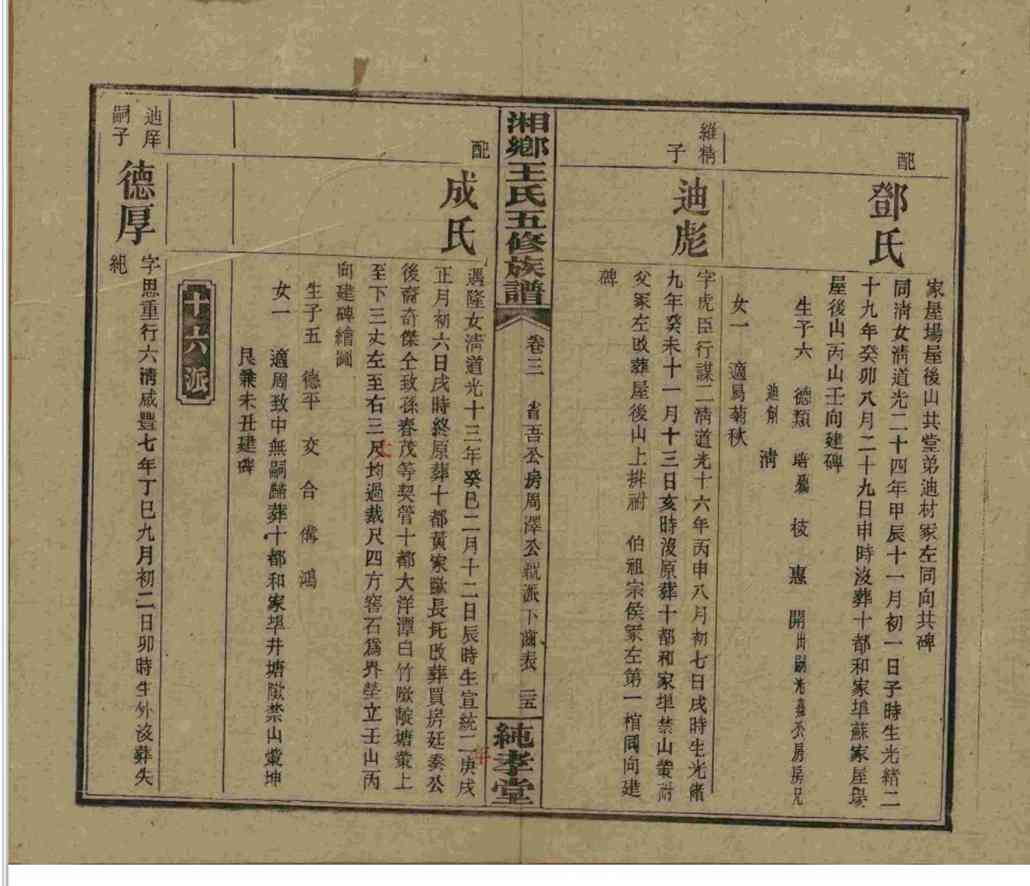 家屋場屋後山共堂弟迪材冢左同向共碑
配
鄧氏
同淸女淸道光二十四年甲辰十一月初一日子時生光緖二
十九年癸卯八月二十九日申時沒葬十都和家埠蘇家屋場
屋後山丙山壬向建碑
生子六 德類 培 枝 惠 開
迪劍 淸
女一 適易菊秋
維精
子
迪彪
字虎臣行謀二淸道光十六年丙申八月初七日戌時生光緖
九年癸未十一月十三日亥時沒原葬十都和家埠禁山叢祔
父冢左改葬屋後山上排祔 伯祖宗侯冢左第一棺同向建
碑
湘鄉王氏五修族譜
卷三 省吾公房周澤公 派下齒表 三五
純孝堂
配
成氏
遇隆女淸道光十三年癸巳二月十二日辰時生宣統二庚戌
正月初六日戌時終原葬十都黃家 長 改葬買房廷奏公
後裔奇傑仝致孫春茂等契管十都大洋潭白竹 塘叢上
至下三丈左至右三尺均過裁尺四方窖石爲界塋立壬山丙
向建碑繪圖
生子五 德平 交 合 儔 鴻
女一 適周致中無嗣歸葬十都和家埠井塘 禁山叢坤
艮兼未丑建碑
十六派
迪庠
嗣子
德厚
字思重行六淸咸豐七年丁巳九月初二日卯時生外沒葬失
純